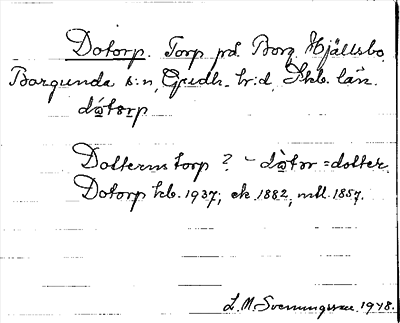 Dotorp. Torp på Borg Hjällsbo
Borgunda s:n, Gudh. h:d, Skb. län.
dɷ́tərp
Dotterns torp? – dɷ̀tər = dotter.
Dotorp kb. 1937; ek. 1882; mtl. 1857.
L. M. Svenungsson 1948.